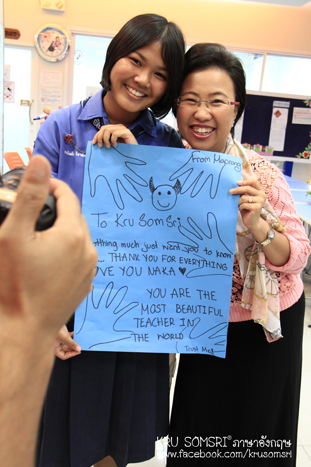 From Mapang
To Kru SomSri
nothing much just want you to know
... THANK YOU FOR EVERYTHING
LOVE YOU NAKA ♥
YOU ARE THE
MOST BEAUTIFUL
TEACHER IN
THE WORLD
Trust Me!
KRU SOMSRI ภาษาอังกฤษ
www.facebook.com/krusomsri